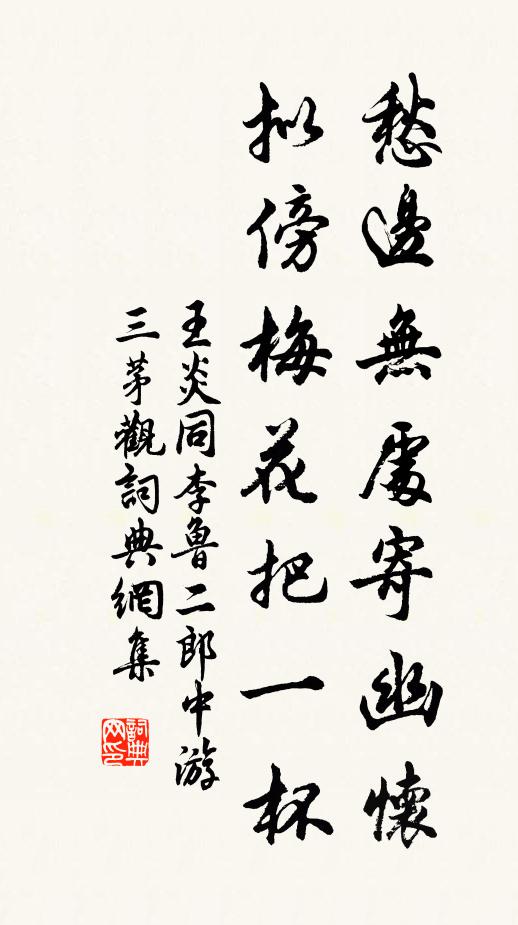 愁邊無處寄幽懷
拟傍梅花把一杯
王炎同李魯二郎中游
三茅觀詞典網集
詞典
网印